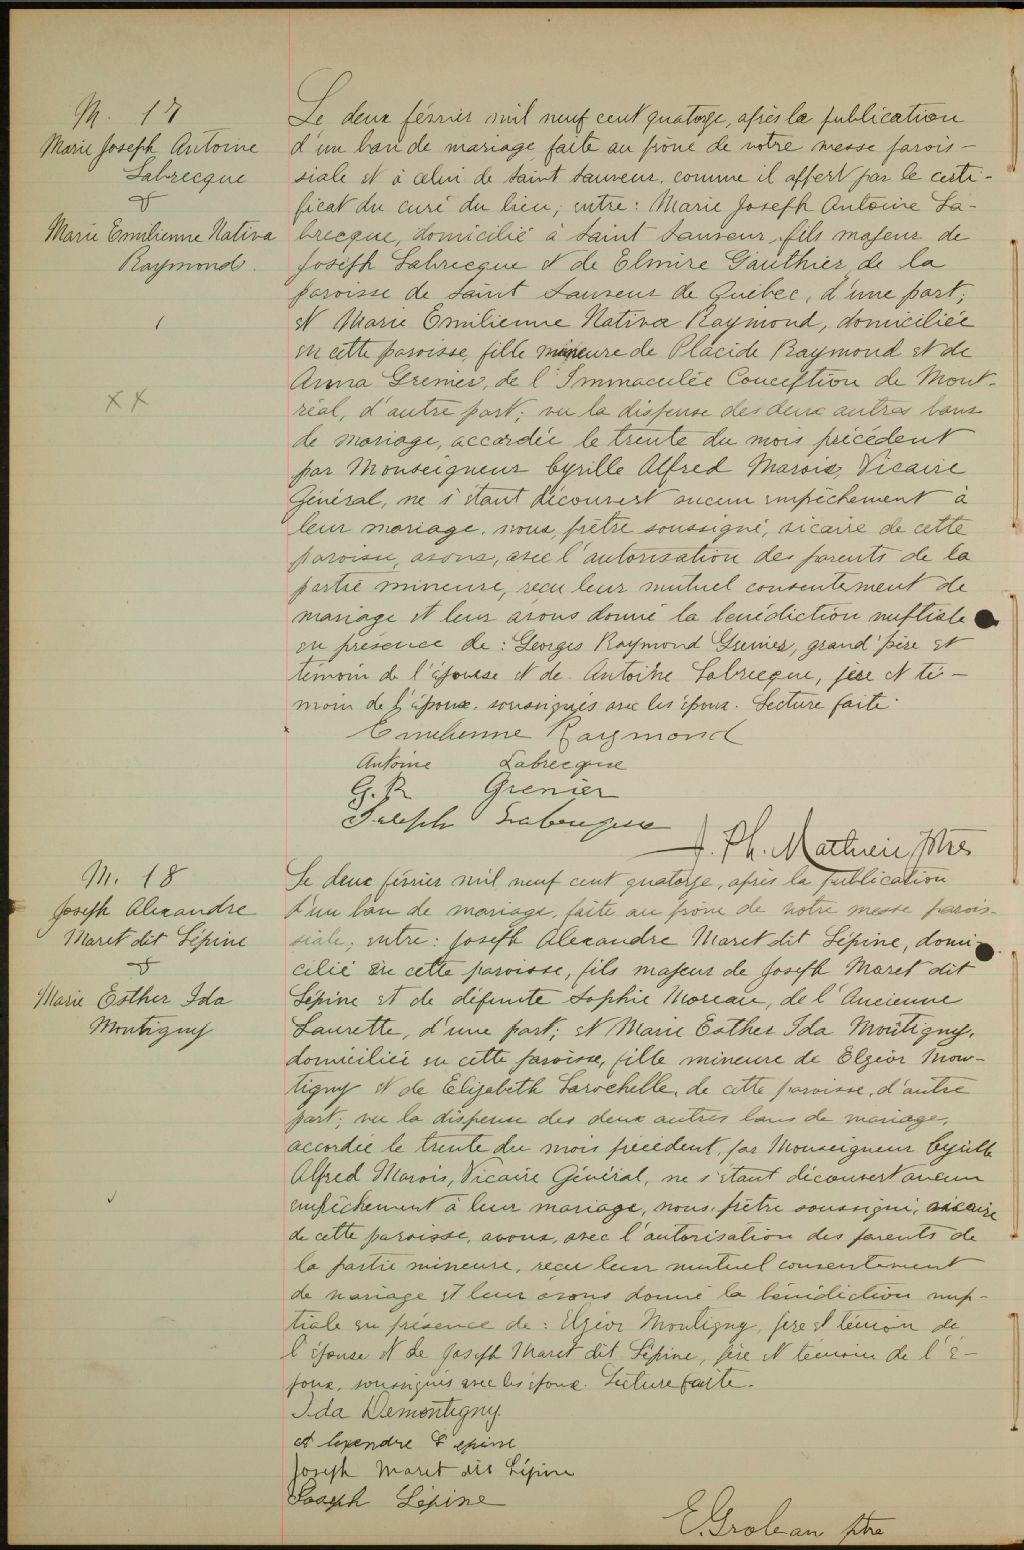 M. 17
Marie Joseph Antoine
Labrecque
&
Marie Emilienne Nativa
Raymond.
Le deux février mil neuf cent quatorze, après la publication
d'un ban de mariage faite au prône de notre messe parois-
siale et à celui de Saint Sauveur, comme il appert par le certi-
ficat du curé du lieu, entre: Marie Joseph Antoine La-
brecque, domicilié à Saint Sauveur, fils majeur de
Joseph Labrecque et de Elmire Gauthier, de la
paroisse de Saint Sauveur de Québec, d'une part;
et Marie Emilienne Nativa Raymond, domiciliée
en cette paroisse, fille mineure de Placide Raymond et de
Anna Grenier, de l'Immaculée Conception de Mont-
réal, d'autre part; vu la dispense des deux autres bans
de mariage, accordée le trente du mois précédent
par Monseigneur Cyrille Alfred Marois, Vicaire
Général, ne s'étant découvert aucun empêchement à
leur mariage, nous, prêtre soussigné, vicaire de cette
paroisse, avons, avec l'autorisation des parents de la
partie mineure, reçu leur mutuel consentement de
mariage et leur avons donné la bénédiction nuptiale
en présence de: Georges Raymond Grenier, grand'père et
témoin de l'épouse et de Antoine Labrecque, père et té-
moin de l'époux, soussignés avec les époux. Lecture faite.
Emilienne Raymond
Antoine Labrecque
G. R Grenier
Joseph Labrecque
J. Ph. Mathieu, ptre
M. 18
Joseph Alexandre
Maret dit Lépine
&
Marie Esther Ida
Montigny
Le deux février mil neuf cent quatorze, après la publication
d'un ban de mariage, faite au prône de notre messe parois-
siale, entre: Joseph Alexandre Maret dit Lépine, domi-
cilié en cette paroisse, fils majeur de Joseph Maret dit
Lépine et de défunte Sophie Moreau, de l'Ancienne
Laurette, d'une part; et Marie Esther Ida Montigny,
domiciliée en cette paroisse, fille mineure de Elzéor Mon-
tigny et de Elizabeth Larochelle, de cette paroisse, d'autre
part; vu la dispense des deux autres bans de mariage,
accordée le trente du mois précédent, par Monseigneur Cyrille
Alfred Marois, Vicaire Général, ne s'étant découvert aucun
empêchement à leur mariage, nous, prêtre soussigné, vicaire
de cette paroisse, avons, avec l'autorisation des parents de
la partie mineure, reçu leur mutuel consentement
de mariage et leur avons donné la bénédiction nup-
tiale en présence de: Elzéor Montigny, père et témoin de
l'épouse et de Joseph Maret dit Lépine, père et témoin de l'é-
poux, soussignés avec les époux. Lecture faite.
Ida Demontigny.
Alexendre Lepine
Joseph Maret dit Lépine
Joseph Lépine
E. Grolean ptre